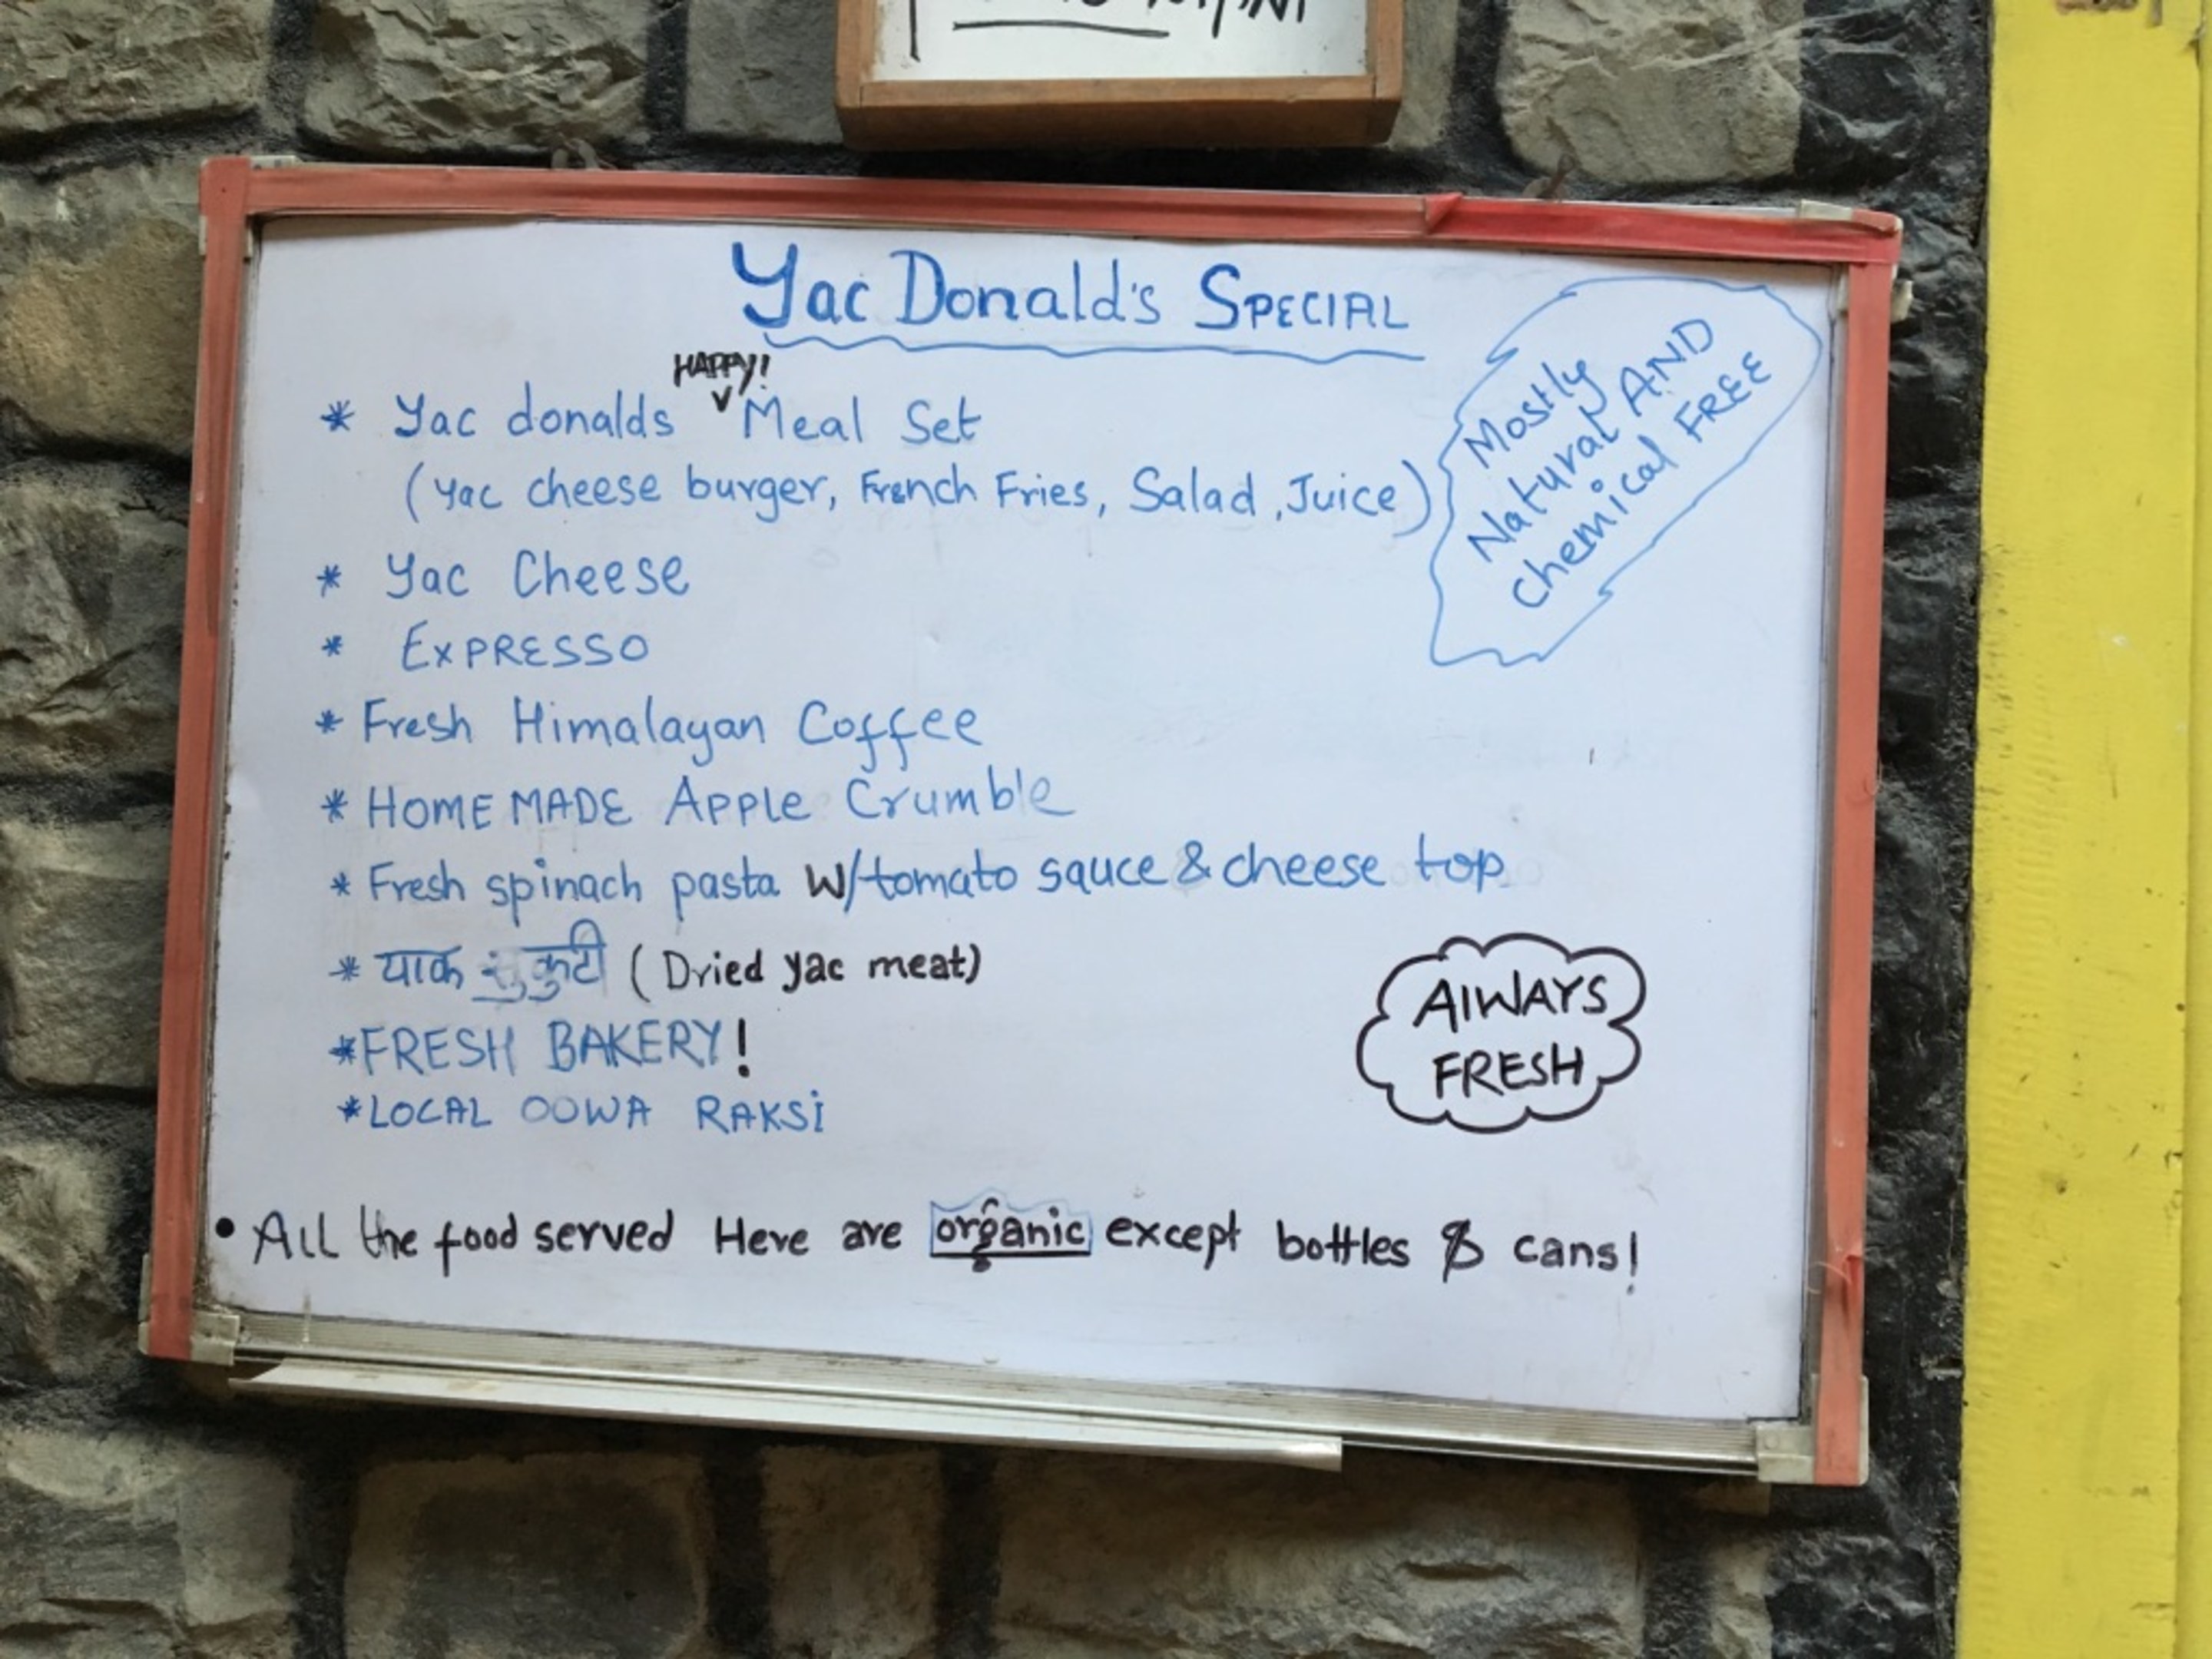 Yac Donald's SPECIAL
HAPPY!
* Yac donalds Meal Set
(yac cheese burger, French Fries, Salad, Juice)
Mostly
Natural AND
Chemical FREE
* Yac Cheese
* EXPRESSO
* Fresh Himalayan Coffee
* HOME MADE Apple Crumble
* Fresh spinach pasta W/tomato sauce & cheese top
* याक सुकुटी (Dried yac meat)
*FRESH BAKERY!
*LOCAL OOWA RAKSi
AlWAYS
FRESH
• All the food served Here are organic except bottles & cans!